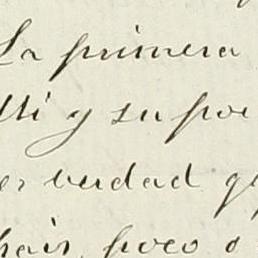 La primera
lli y su poe
es verdad q
hais, poco o